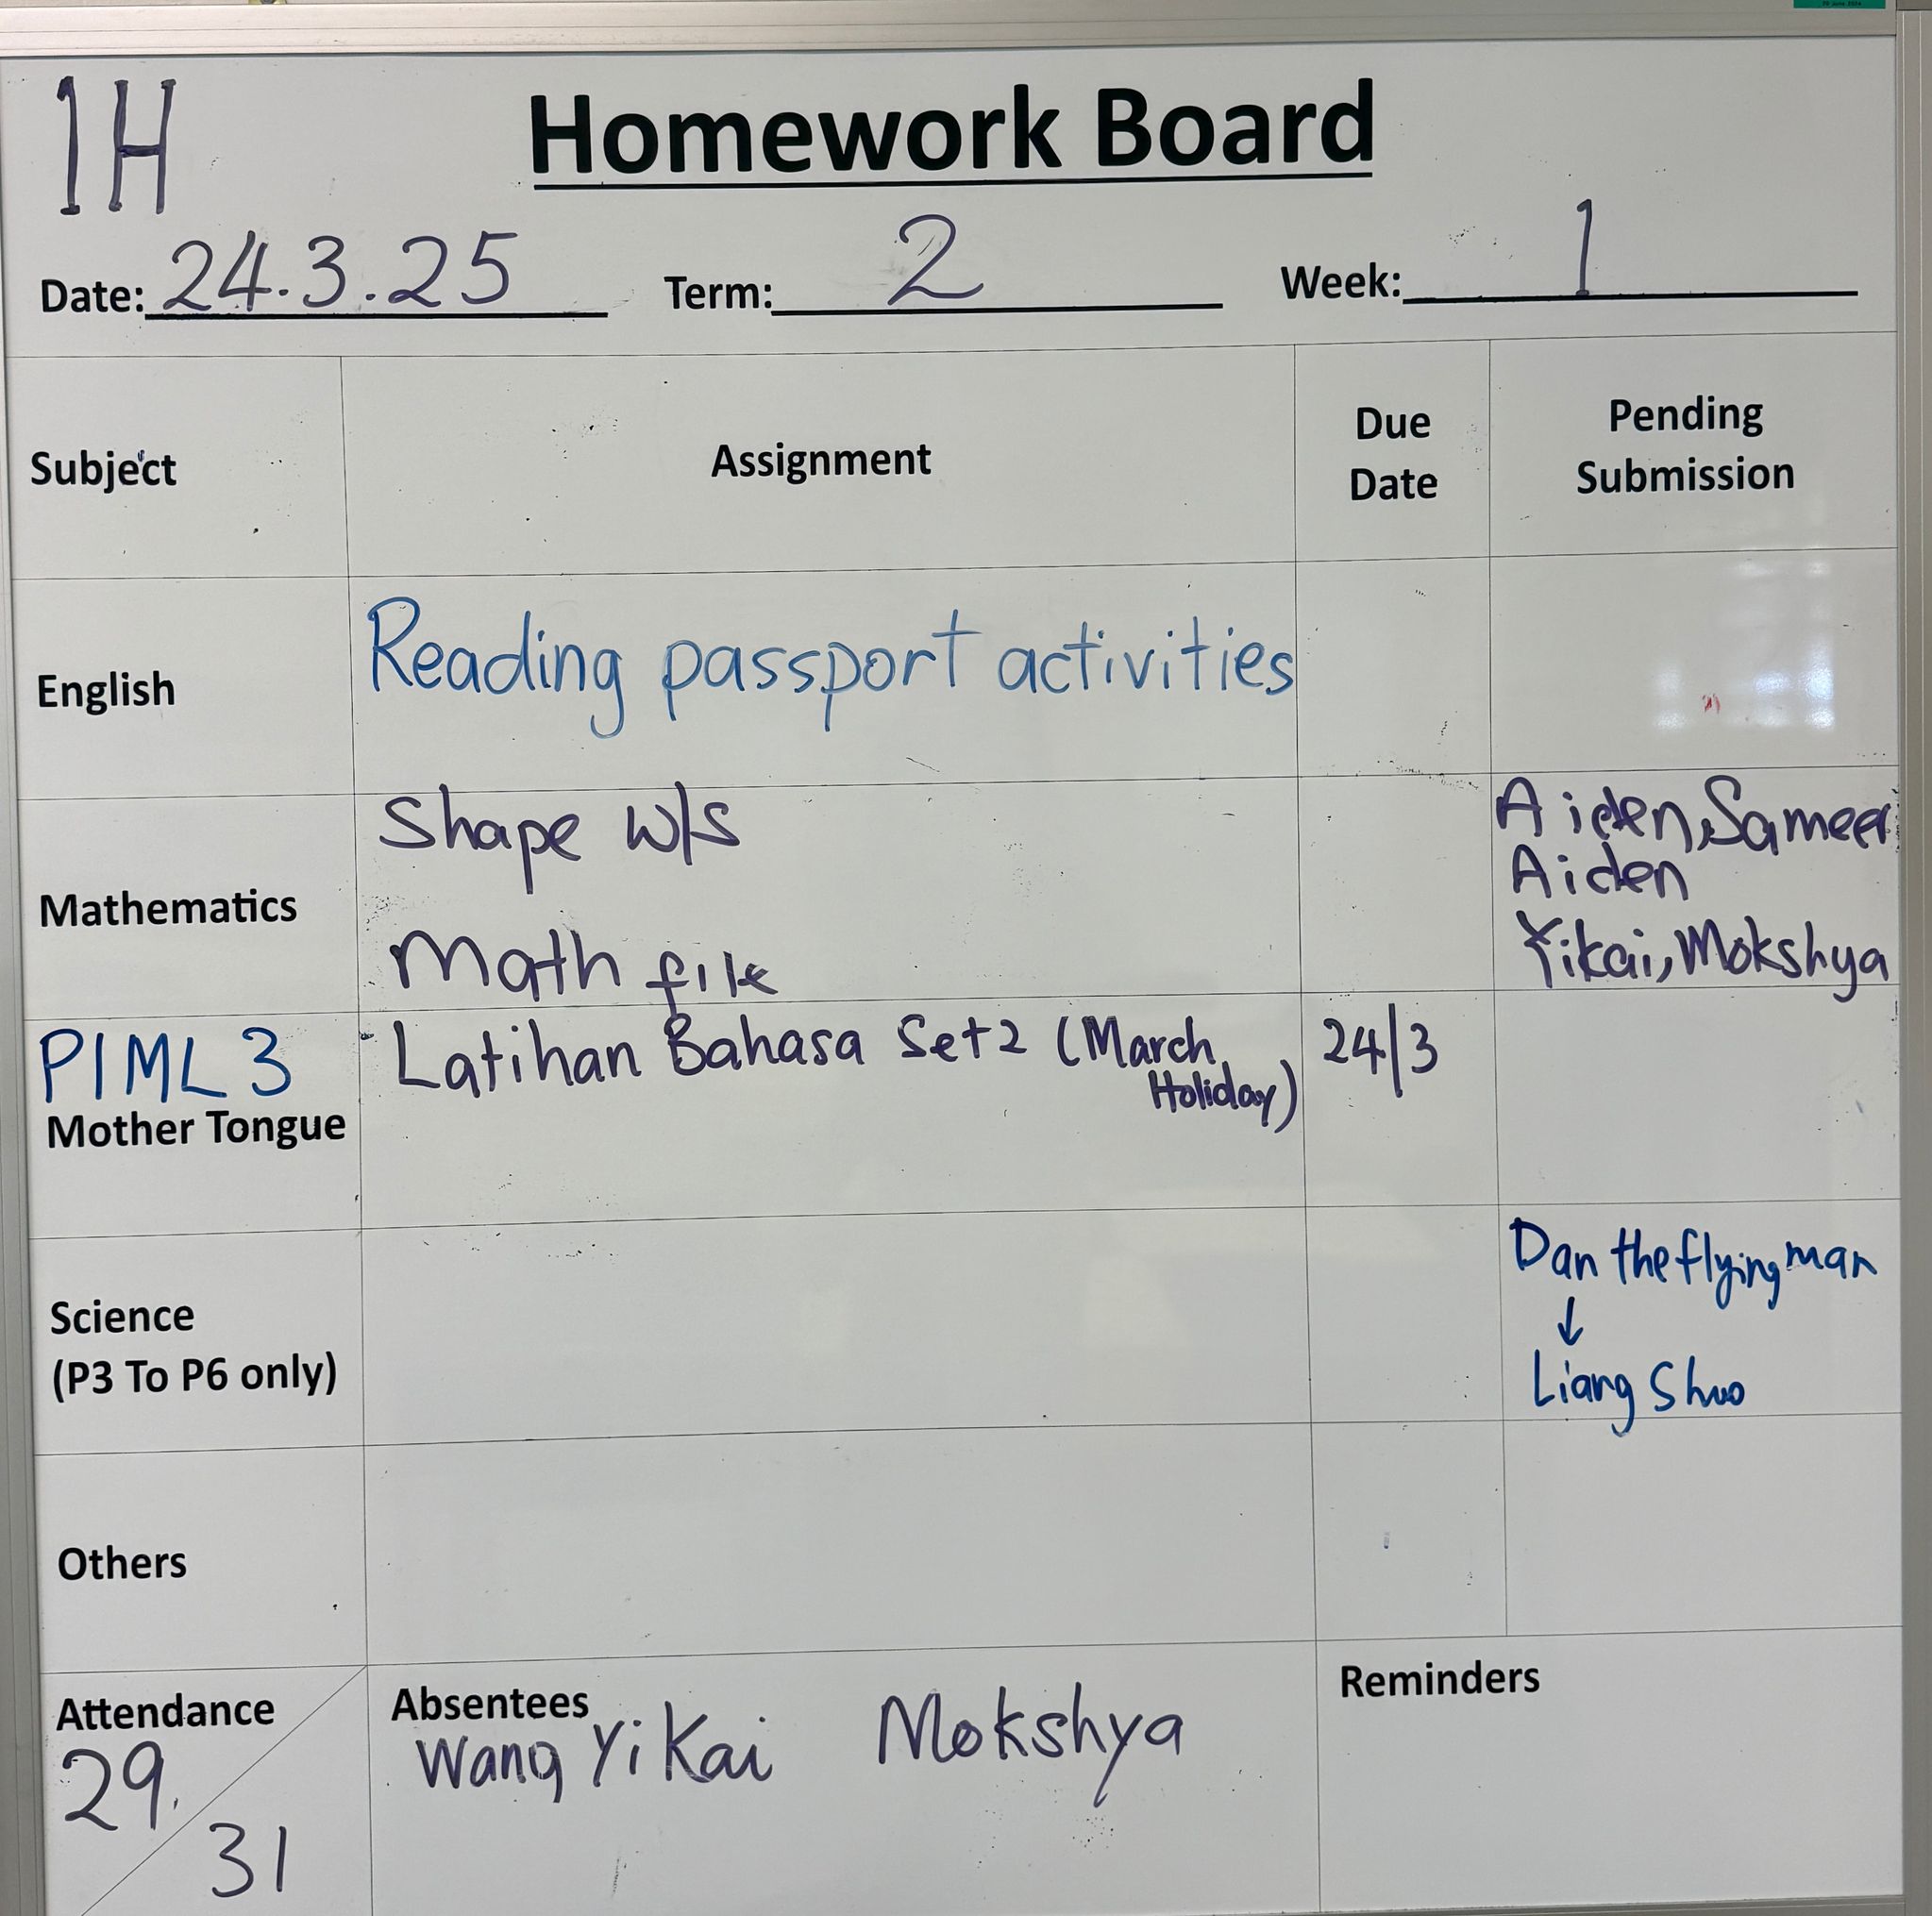 1H
Homework Board
Date: 24.3.25 Term: 2 Week: 1
Subject Assignment Due Date Pending Submission
English Reading passport activities
Mathematics
Shape w/s Aiden, Sameer
Aiden
Math file Yikai, Mokshya
P1ML3 Latihan Bahasa Set 2 (March Holiday) 24/3
Mother Tongue
Science
(P3 To P6 only)
Dan the flying man
↓
Liang Shuo
Others
Attendance
29
31
Absentees
Wang Yi Kai Mokshya
Reminders